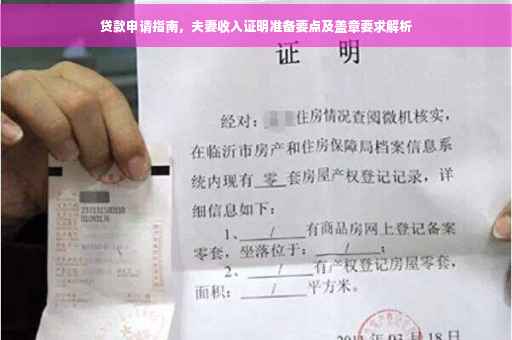 贷款申请指南，夫妻收入证明准备要点及盖章要求解析
证 明
经对： 住房情况查阅微机核实，
在临沂市房产和住房保障局档案信息系
统内现有 零 套房屋产权登记记录，详
细信息如下：
1、 / 有商品房网上登记备案
零套，坐落位于： / ；
2、 / 有产权登记房屋零套，
面积： / 平方米。
03月18日